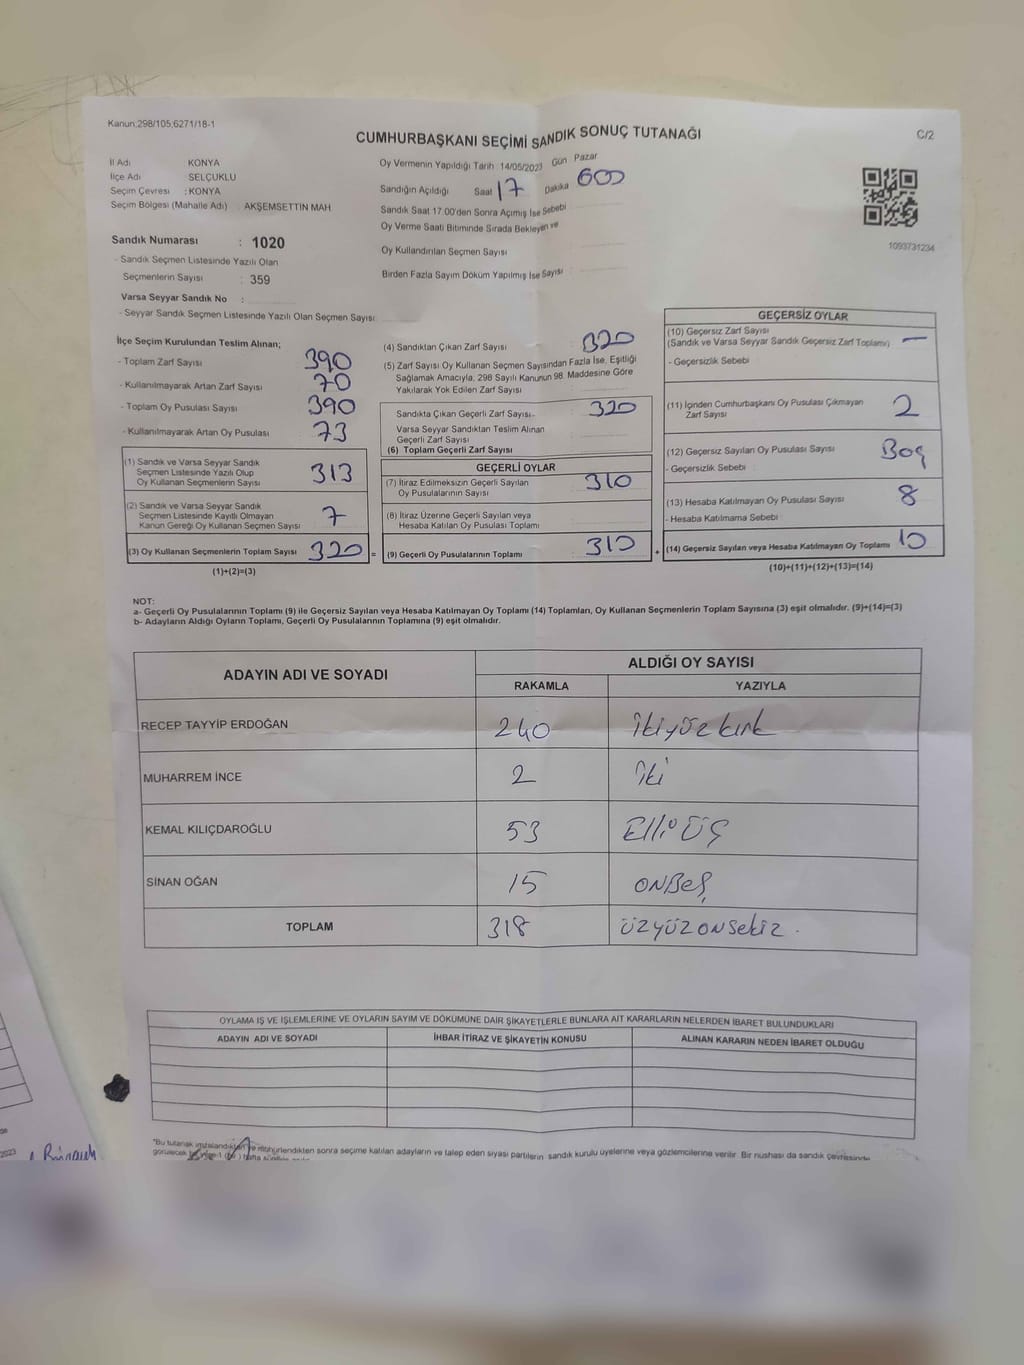 Kanun;298/105;6271/18-1
CUMHURBAŞKANI SEÇİMİ SANDIK SONUÇ TUTANAĞI
C/2
İl Adı KONYA
İlçe Adı SELÇUKLU
Seçim Çevresi : KONYA
Seçim Bölgesi (Mahalle Adı) : AKŞEMSETTİN MAH.
Sandık Numarası : 1020
- Sandık Seçmen Listesinde Yazılı Olan
Seçmenlerin Sayısı : 359
Varsa Seyyar Sandık No :
- Seyyar Sandık Seçmen Listesinde Yazılı Olan Seçmen Sayısı:
Oy Vermenin Yapıldığı Tarih : 14/05/2023 Gün Pazar
Sandığın Açıldığı Saat 17 Dakika 600
Sandık Saat 17.00'den Sonra Açımış İse Sebebi
Oy Verme Saati Bitiminde Sırada Bekleyen ve
Oy Kullandırılan Seçmen Sayısı
Birden Fazla Sayım Döküm Yapılmış İse Sayısı
1093731234
İlçe Seçim Kurulundan Teslim Alınan;
- Toplam Zarf Sayısı 390
- Kullanılmayarak Artan Zarf Sayısı 70
- Toplam Oy Pusulası Sayısı 390
- Kullanılmayarak Artan Oy Pusulası 73
(1) Sandık ve Varsa Seyyar Sandık
Seçmen Listesinde Yazılı Olup
Oy Kullanan Seçmenlerin Sayısı 313
(2) Sandık ve Varsa Seyyar Sandık
Seçmen Listesinde Kayıtlı Olmayan
Kanun Gereği Oy Kullanan Seçmen Sayısı 7
(3) Oy Kullanan Seçmenlerin Toplam Sayısı 320 =
(1)+(2)=(3)
(4) Sandıktan Çıkan Zarf Sayısı 320
(5) Zarf Sayısı Oy Kullanan Seçmen Sayısından Fazla İse, Eşitliği
Sağlamak Amacıyla, 298 Sayılı Kanunun 98. Maddesine Göre
Yakılarak Yok Edilen Zarf Sayısı
Sandıkta Çıkan Geçerli Zarf Sayısı- 320
Varsa Seyyar Sandıktan Teslim Alınan
Geçerli Zarf Sayısı
(6) Toplam Geçerli Zarf Sayısı
GEÇERLİ OYLAR
(7) İtiraz Edilmeksizin Geçerli Sayılan
Oy Pusulalarının Sayısı 310
(8) İtiraz Üzerine Geçerli Sayılan veya
Hesaba Katılan Oy Pusulası Toplamı
(9) Geçerli Oy Pusulalarının Toplamı 310 +
GEÇERSİZ OYLAR
(10) Geçersiz Zarf Sayısı
(Sandık ve Varsa Seyyar Sandık Geçersiz Zarf Toplamı) —
- Geçersizlik Sebebi
(11) İçinden Cumhurbaşkanı Oy Pusulası Çıkmayan
Zarf Sayısı 2
(12) Geçersiz Sayılan Oy Pusulası Sayısı Boş
- Geçersizlik Sebebi
(13) Hesaba Katılmayan Oy Pusulası Sayısı 8
- Hesaba Katılmama Sebebi
(14) Geçersiz Sayılan veya Hesaba Katılmayan Oy Toplamı 10
(10)+(11)+(12)+(13)=(14)
NOT:
a- Geçerli Oy Pusulalarının Toplamı (9) ile Geçersiz Sayılan veya Hesaba Katılmayan Oy Toplamı (14) Toplamları, Oy Kullanan Seçmenlerin Toplam Sayısına (3) eşit olmalıdır. (9)+(14)=(3)
b- Adayların Aldığı Oyların Toplamı, Geçerli Oy Pusulalarının Toplamına (9) eşit olmalıdır.
ADAYIN ADI VE SOYADI ALDIĞI OY SAYISI
RAKAMLA YAZIYLA
RECEP TAYYİP ERDOĞAN 240 ikiyüzkırk
MUHARREM İNCE 2 iki
KEMAL KILIÇDAROĞLU 53 Elli ÜÇ
SİNAN OĞAN 15 ONBeş
TOPLAM 318 ÜZYÜZONSekiz.
OYLAMA İŞ VE İŞLEMLERİNE VE OYLARIN SAYIM VE DÖKÜMÜNE DAİR ŞİKAYETLERLE BUNLARA AİT KARARLARIN NELERDEN İBARET BULUNDUKLARI
ADAYIN ADI VE SOYADI İHBAR İTİRAZ VE ŞİKAYETİN KONUSU ALINAN KARARIN NEDEN İBARET OLDUĞU
*Bu tutanak imzalandıktan ve mühürlendikten sonra seçime katılan adayların ve talep eden siyasi partilerin sandık kurulu üyelerine veya gözlemcilerine verilir. Bir nushası da sandık çevresinde
görülecek
2023